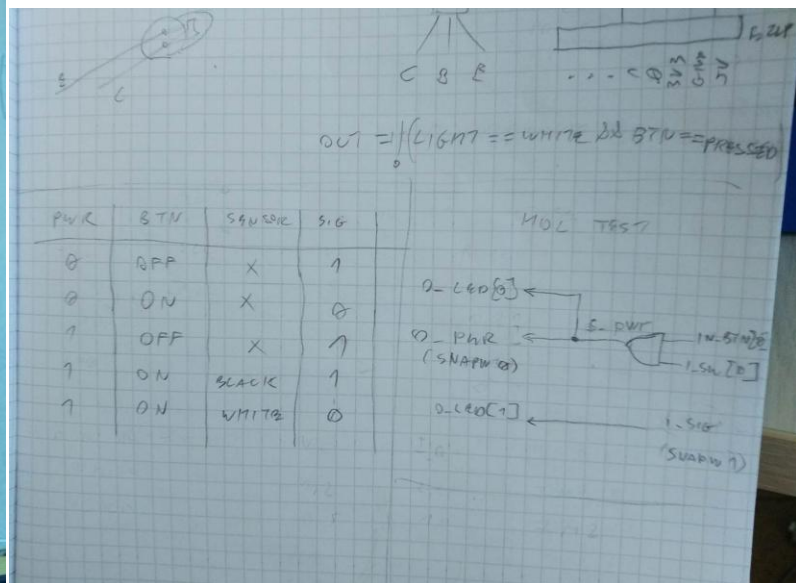 C B E
OUT = !(LIGHT == WHITE && BTN == PRESSED)
PWR BTN SENSOR SIG
0 OFF X 1
0 ON X 0
1 OFF X 1
1 ON BLACK 1
1 ON WHITE 0
HDL TEST
O_LED[0]
S_PWR
O_PWR
(SNAPW 0)
I_SW[0]
O_LED[1]
I_SIG
(SNAPW 1)